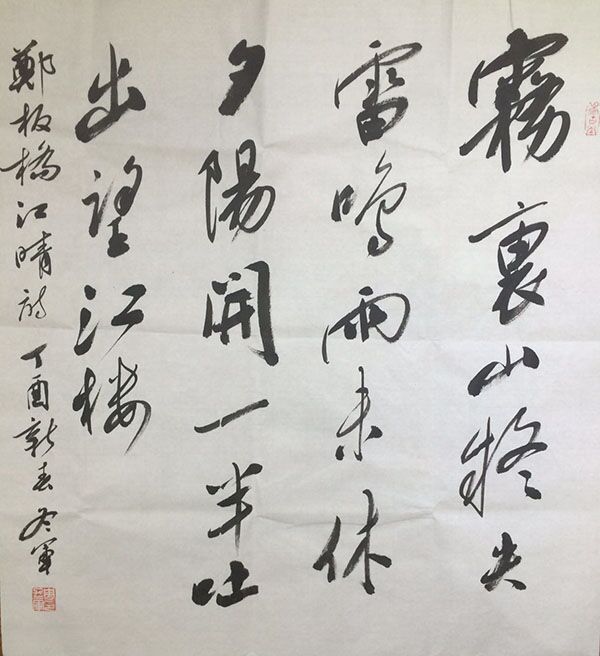 霧裏山疑失
雷鳴雨未休
夕陽開一半吐
出望江楼
鄭板橋江晴詩 丁酉新春